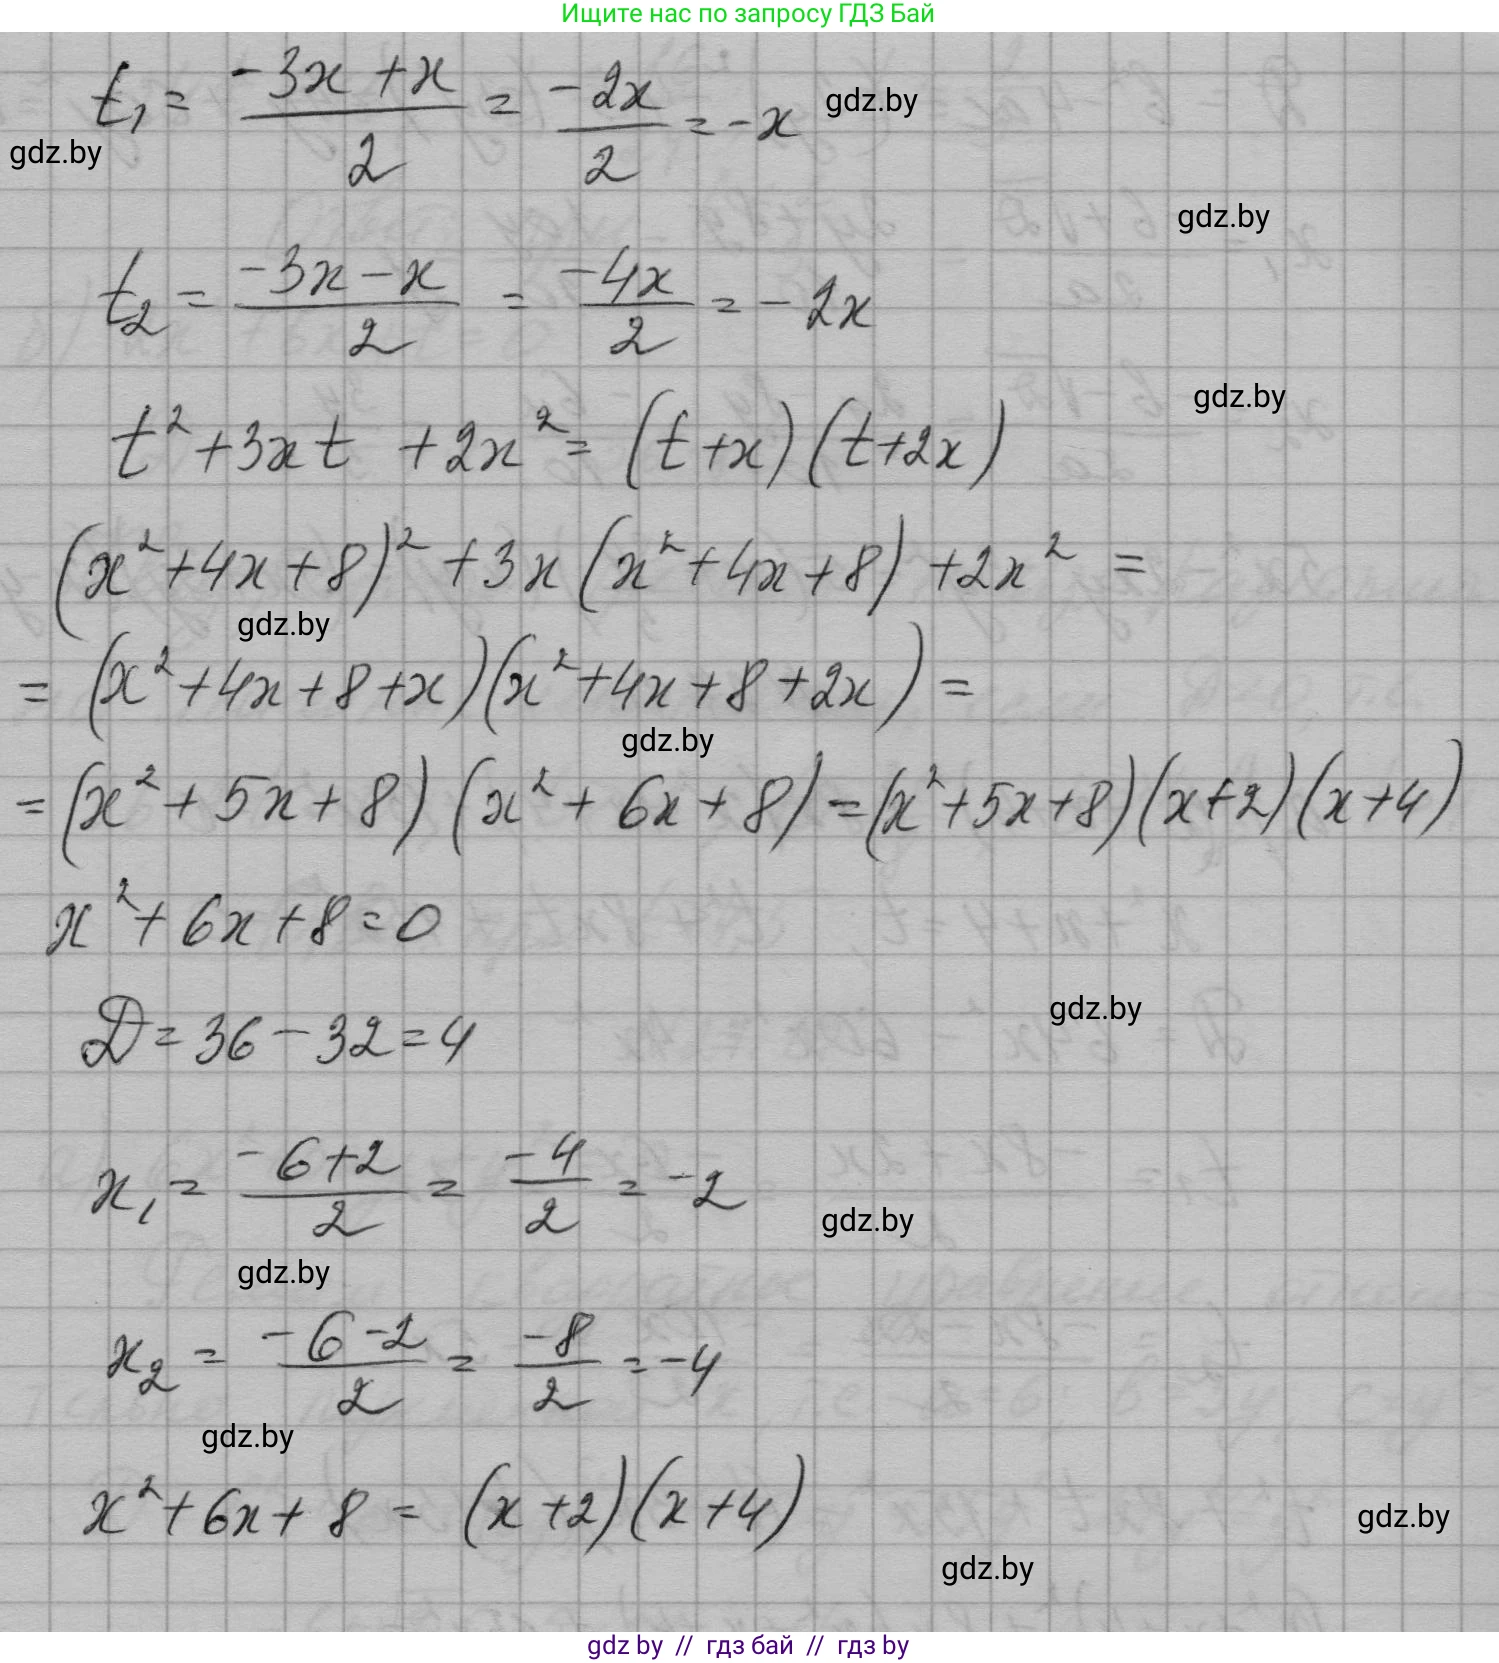 Ищите нас по запросу ГДЗ Бай
t₁ = (-3x + x)/2 = -2x/2 = -x
gdz.by
gdz.by
gdz.by
t₂ = (-3x - x)/2 = -4x/2 = -2x
gdz.by
t² + 3xt + 2x² = (t + x)(t + 2x)
(x² + 4x + 8)² + 3x(x² + 4x + 8) + 2x² =
gdz.by
= (x² + 4x + 8 + x)(x² + 4x + 8 + 2x) =
gdz.by
= (x² + 5x + 8)(x² + 6x + 8) = (x² + 5x + 8)(x + 2)(x + 4)
x² + 6x + 8 = 0
gdz.by
D = 36 - 32 = 4
x₁ = (-6 + 2)/2 = -4/2 = -2
gdz.by
gdz.by
x₂ = (-6 - 2)/2 = -8/2 = -4
gdz.by
x² + 6x + 8 = (x + 2)(x + 4)
gdz.by
gdz.by
gdz by // гдз бай // гдз by